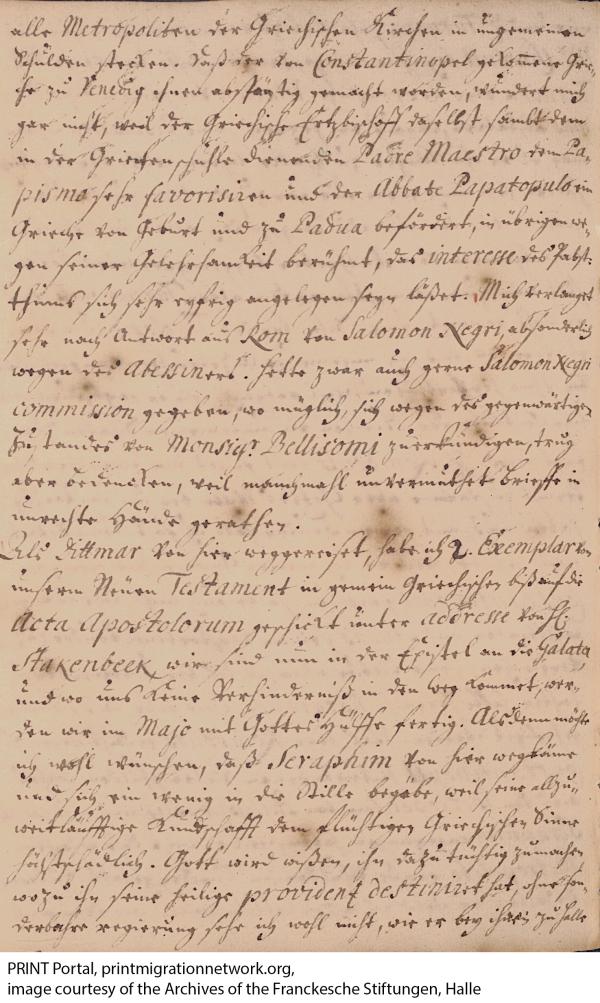 alle Metropoliten der Griechischen Kirchen in ungemeinen
Schulden stecken. Daß der von Constantinopel gekom̅ene Grie-
che zu Venedig ihnen abspänstig gemacht worden, wundert mich
gar nicht, weil der Griechische Ertzbischoff daselbst, sambt dem
in der Griechenschuhle dienenden Padre Maestro dem Pa-
pismo sehr favorisiren und der Abbate Papatopulo ein
Grieche von Geburt und zu Padua befördert, in übrigen we-
gen seiner Gelehrsamkeit berühmt, das interesse des Pabst-
thums sich sehr eyfrig angelegen seyn läßet. Mich verlanget
sehr nach Antwort aus Rom von Salomon Negri, absonderlich
wegen des Abessiners. hette zwar auch gerne Salomon Negri
commission gegeben, wo müglich, sich wegen des gegenwärtigen
Zustandes von Monsigr. Bellisomi zuerkundigen, trug
aber bedencken, weil manchmahl unvermuthet brieffe in
unrechte Hände gerathen.
Als Dittmar von hier weggereiset, habe ich 2. Exemplar von
unserm Neuen Testament in gemein Griechischen biß auf die
Acta Apostolorum geschickt unter addresse von H.
Stakenbeek, wir sind nun in der Epistel an die Galat.
und wo uns keine Verhinderniß in den Weg kommet, wer-
den wir im Majo mit Gottes Hülffe fertig. Alsdenn möchte
ich wohl wünschen, daß Seraphim von hier wegkäme
und sich ein wenig in die Stille begäbe, weil seine allzu-
weitläufftige Kundschafft dem flüchtigen Griechischen Sinne
höchstschädlich. Gott wird wißen, ihn dazu tüchtig zumachen
wozu ihn seine heilige providentz destiniret hat, ohne son-
derbahre regierung sehe ich wohl nicht, wie er bey ihnen zu Halle
PRINT Portal, printmigrationnetwork.org,
image courtesy of the Archives of the Franckesche Stiftungen, Halle